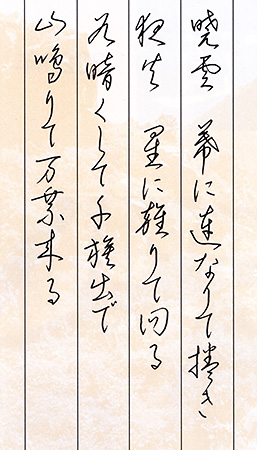 暁雲 幕に連なりて捲き
夜火 星に雑りて回る
谷暗くして千旗出で
山鳴りて万乗来る